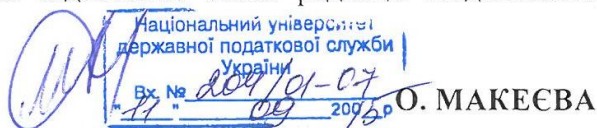 Національний університет
державної податкової служби
України
Вх. № 204/01-07
"11" 09 200 р О. МАКЕЄВА